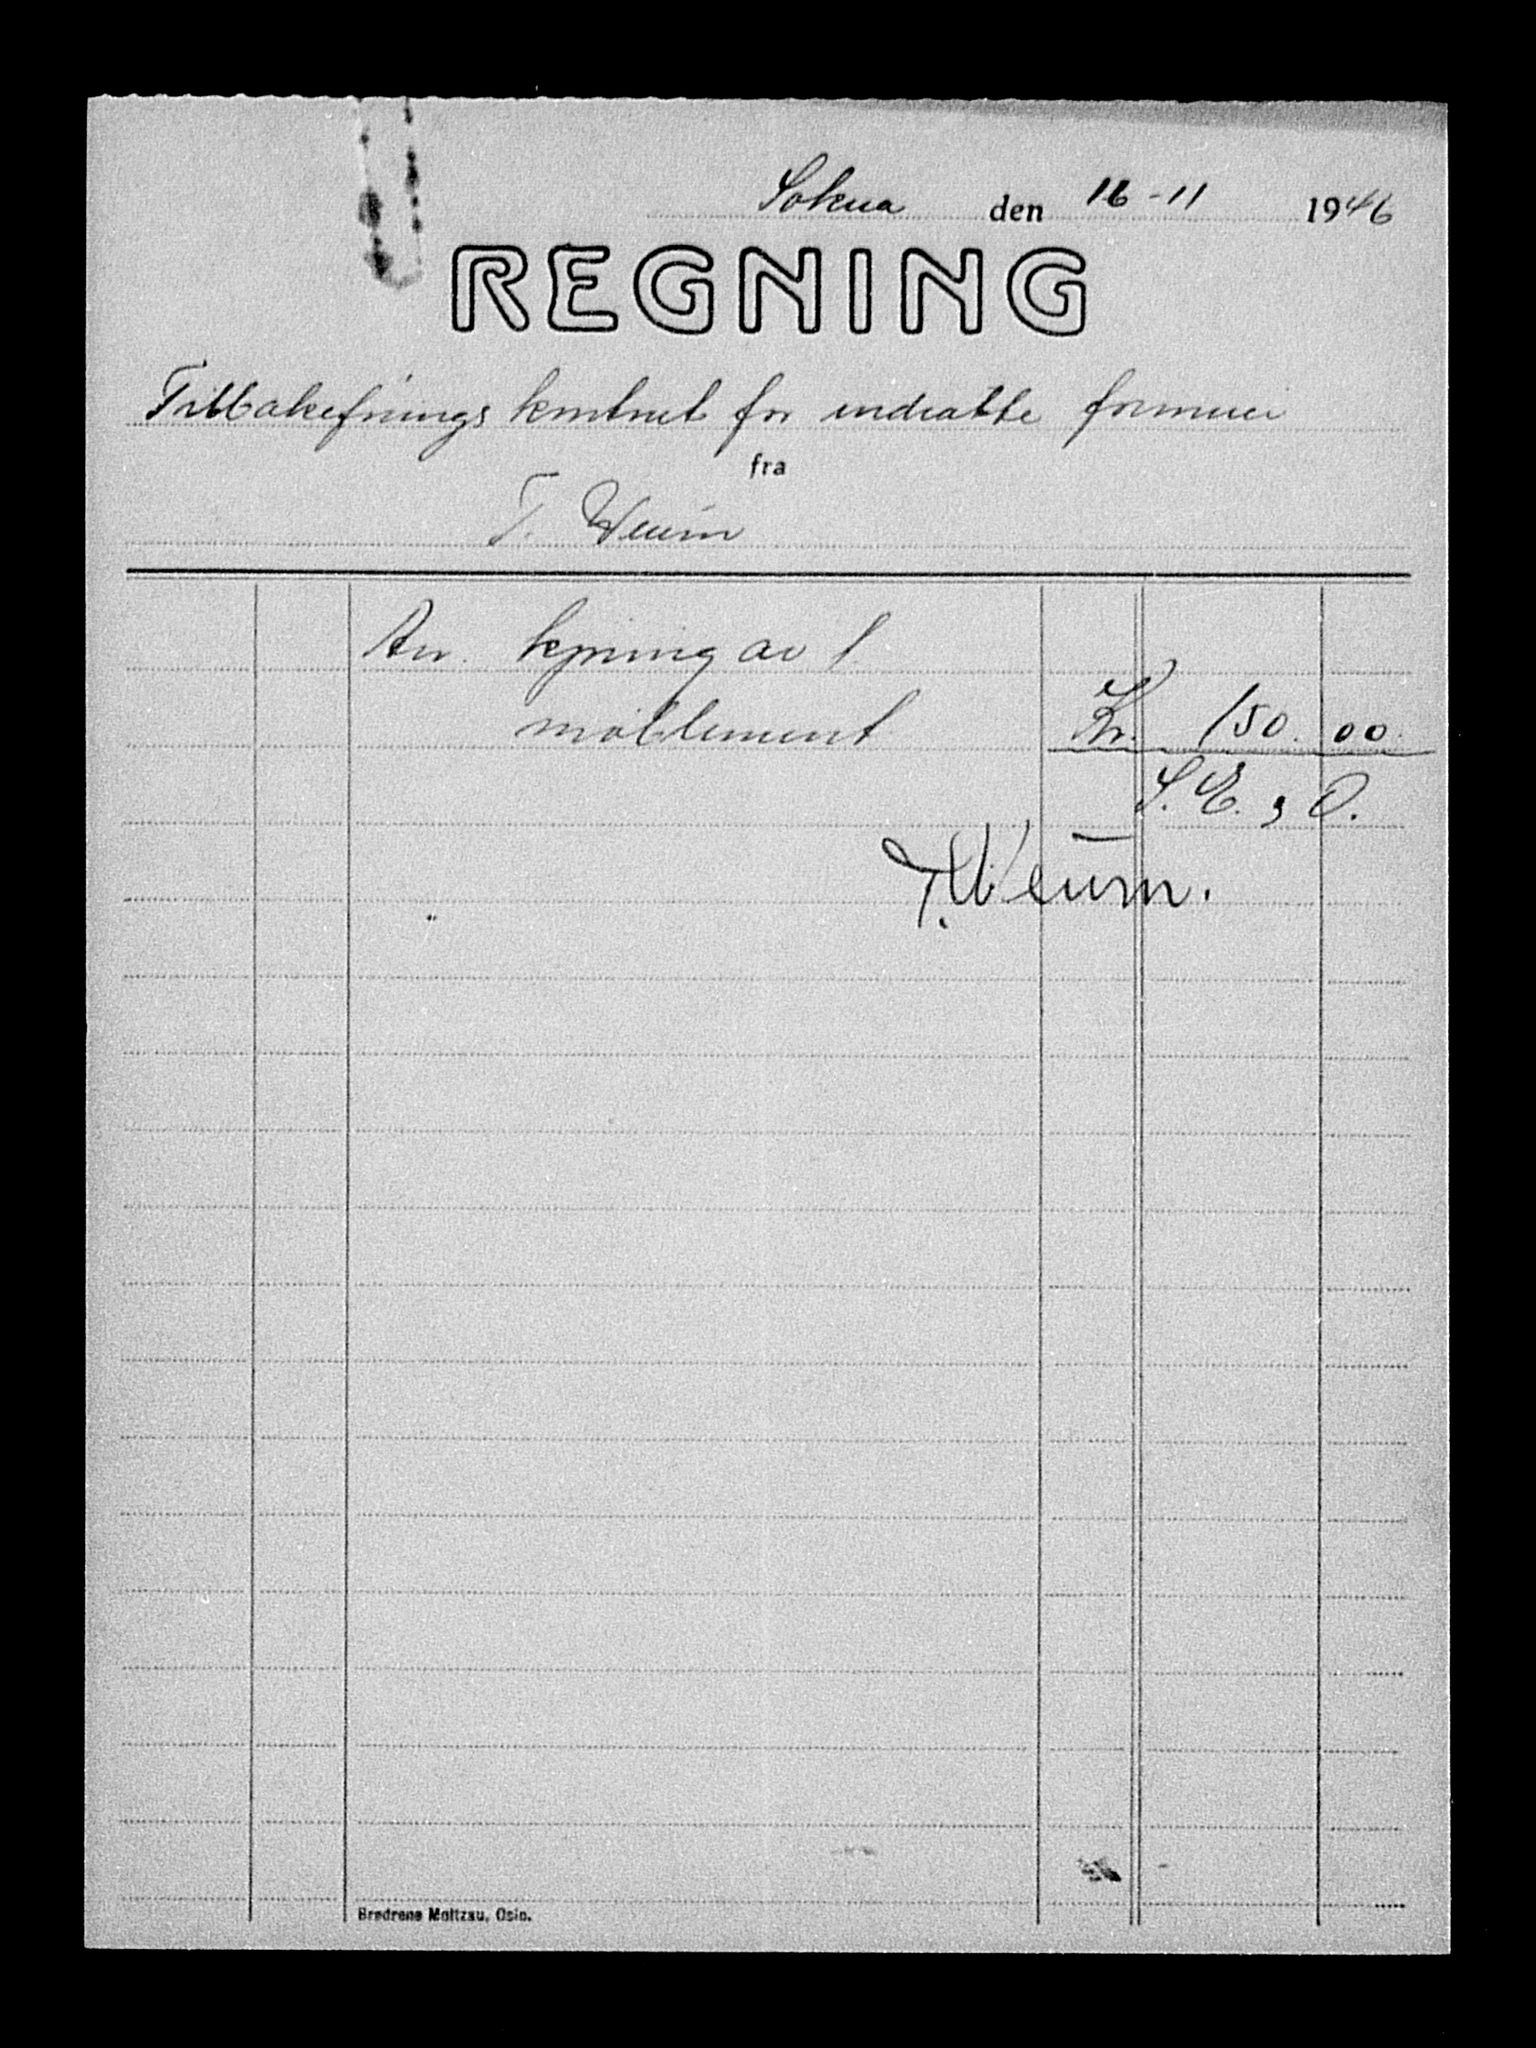 Sokna den 16-11 1946
REGNING
Tilbakeførings kontoret for inndratte formuer
fra
T. Weum
An. kjøring av 1
møblement Kr. 150.00
S. E. & O.
T. Weum.
Brødrene Moltzau, Oslo.